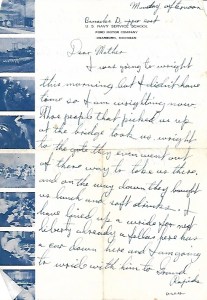 Monday afternoon
Barracks D. upper east
U S NAVY SERVICE SCHOOL
FORD MOTOR COMPANY
DEARBORN, MICHIGAN
Dear Mother
I was going to wright
this morning but I didn't have
time so I am wrighting now
Those people that picked us up
at the bridge took us wright
to the gate they even went out
of there way to take us there,
and on the way down they bought
us lunch and soft drinks. I
have lined up a wride for next
liberty already a fellow here has a
car down here and I am going
to wride with him to Grand
Rapids